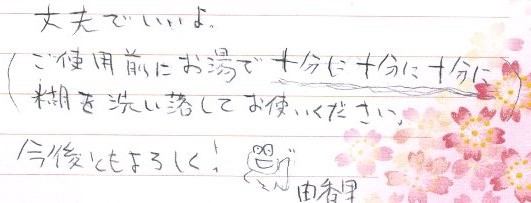 丈夫でいいよ。
(ご使用前にお湯で十分に十分に十分に
糊を洗い落してお使いください。)
今後ともよろしく!
由香里